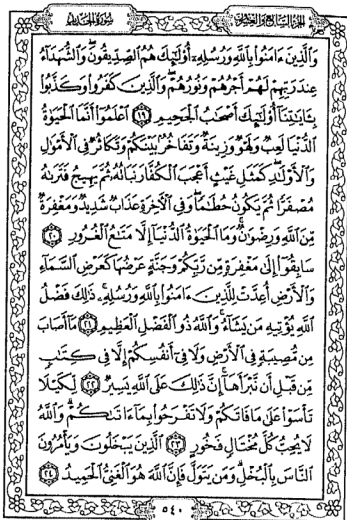 الجزء السابع والعشرون
سورة الحديد
وَالَّذِينَ ءَامَنُوا۟ بِاللَّهِ وَرُسُلِهِۦٓ أُو۟لَٰٓئِكَ هُمُ الصِّدِّيقُونَ ۖ وَالشُّهَدَآءُ
عِندَ رَبِّهِمْ لَهُمْ أَجْرُهُمْ وَنُورُهُمْ ۖ وَالَّذِينَ كَفَرُوا۟ وَكَذَّبُوا۟
بِـَٔايَٰتِنَآ أُو۟لَٰٓئِكَ أَصْحَٰبُ الْجَحِيمِ ١٩ اعْلَمُوٓا۟ أَنَّمَا الْحَيَوٰةُ
الدُّنْيَا لَعِبٌ وَلَهْوٌ وَزِينَةٌ وَتَفَاخُرٌۢ بَيْنَكُمْ وَتَكَاثُرٌ فِى الْأَمْوَٰلِ
وَالْأَوْلَٰدِ ۖ كَمَثَلِ غَيْثٍ أَعْجَبَ الْكُفَّارَ نَبَاتُهُۥ ثُمَّ يَهِيجُ فَتَرَىٰهُ
مُصْفَرًّا ثُمَّ يَكُونُ حُطَٰمًا ۖ وَفِى الْءَاخِرَةِ عَذَابٌ شَدِيدٌ وَمَغْفِرَةٌ
مِّنَ اللَّهِ وَرِضْوَٰنٌ ۚ وَمَا الْحَيَوٰةُ الدُّنْيَآ إِلَّا مَتَٰعُ الْغُرُورِ ٢٠
سَابِقُوٓا۟ إِلَىٰ مَغْفِرَةٍ مِّن رَّبِّكُمْ وَجَنَّةٍ عَرْضُهَا كَعَرْضِ السَّمَآءِ
وَالْأَرْضِ أُعِدَّتْ لِلَّذِينَ ءَامَنُوا۟ بِاللَّهِ وَرُسُلِهِۦ ۚ ذَٰلِكَ فَضْلُ
اللَّهِ يُؤْتِيهِ مَن يَشَآءُ ۚ وَاللَّهُ ذُو الْفَضْلِ الْعَظِيمِ ٢١ مَآ أَصَابَ
مِن مُّصِيبَةٍ فِى الْأَرْضِ وَلَا فِىٓ أَنفُسِكُمْ إِلَّا فِى كِتَٰبٍ
مِّن قَبْلِ أَن نَّبْرَأَهَآ ۚ إِنَّ ذَٰلِكَ عَلَى اللَّهِ يَسِيرٌ ٢٢ لِّكَيْلَا
تَأْسَوْا۟ عَلَىٰ مَا فَاتَكُمْ وَلَا تَفْرَحُوا۟ بِمَآ ءَاتَىٰكُمْ ۗ وَاللَّهُ
لَا يُحِبُّ كُلَّ مُخْتَالٍ فَخُورٍ ٢٣ الَّذِينَ يَبْخَلُونَ وَيَأْمُرُونَ
النَّاسَ بِالْبُخْلِ ۗ وَمَن يَتَوَلَّ فَإِنَّ اللَّهَ هُوَ الْغَنِىُّ الْحَمِيدُ ٢٤
٥٤٠